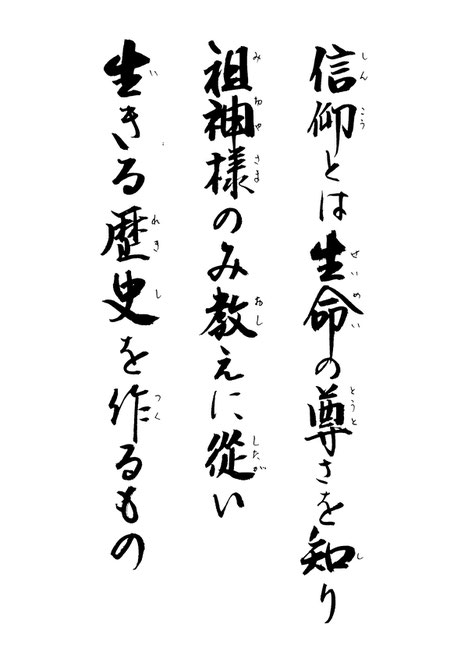 信仰とは生命の尊さを知り
祖神様のみ教えに從い
生きる歴史を作るもの